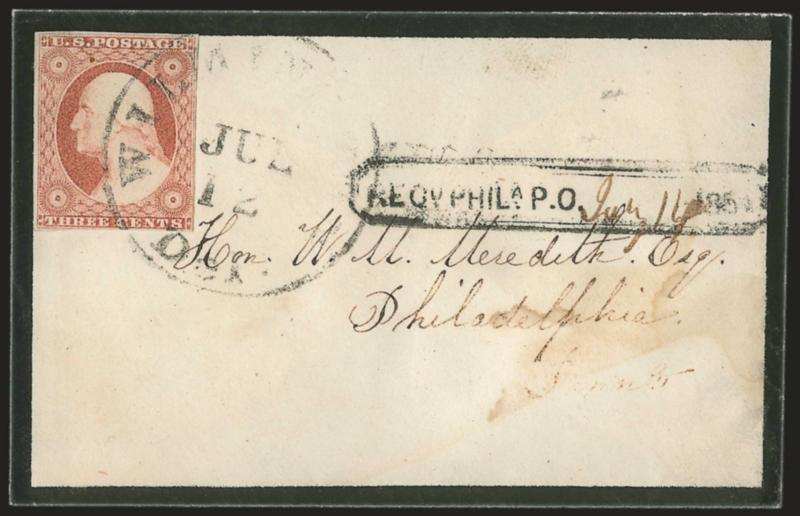 U.S. POSTAGE
THREE CENTS
JUL
12
DEL.
PHILA P.O. 14 185
Hon. W. M. Meredith. Esq.
Philadelphia.